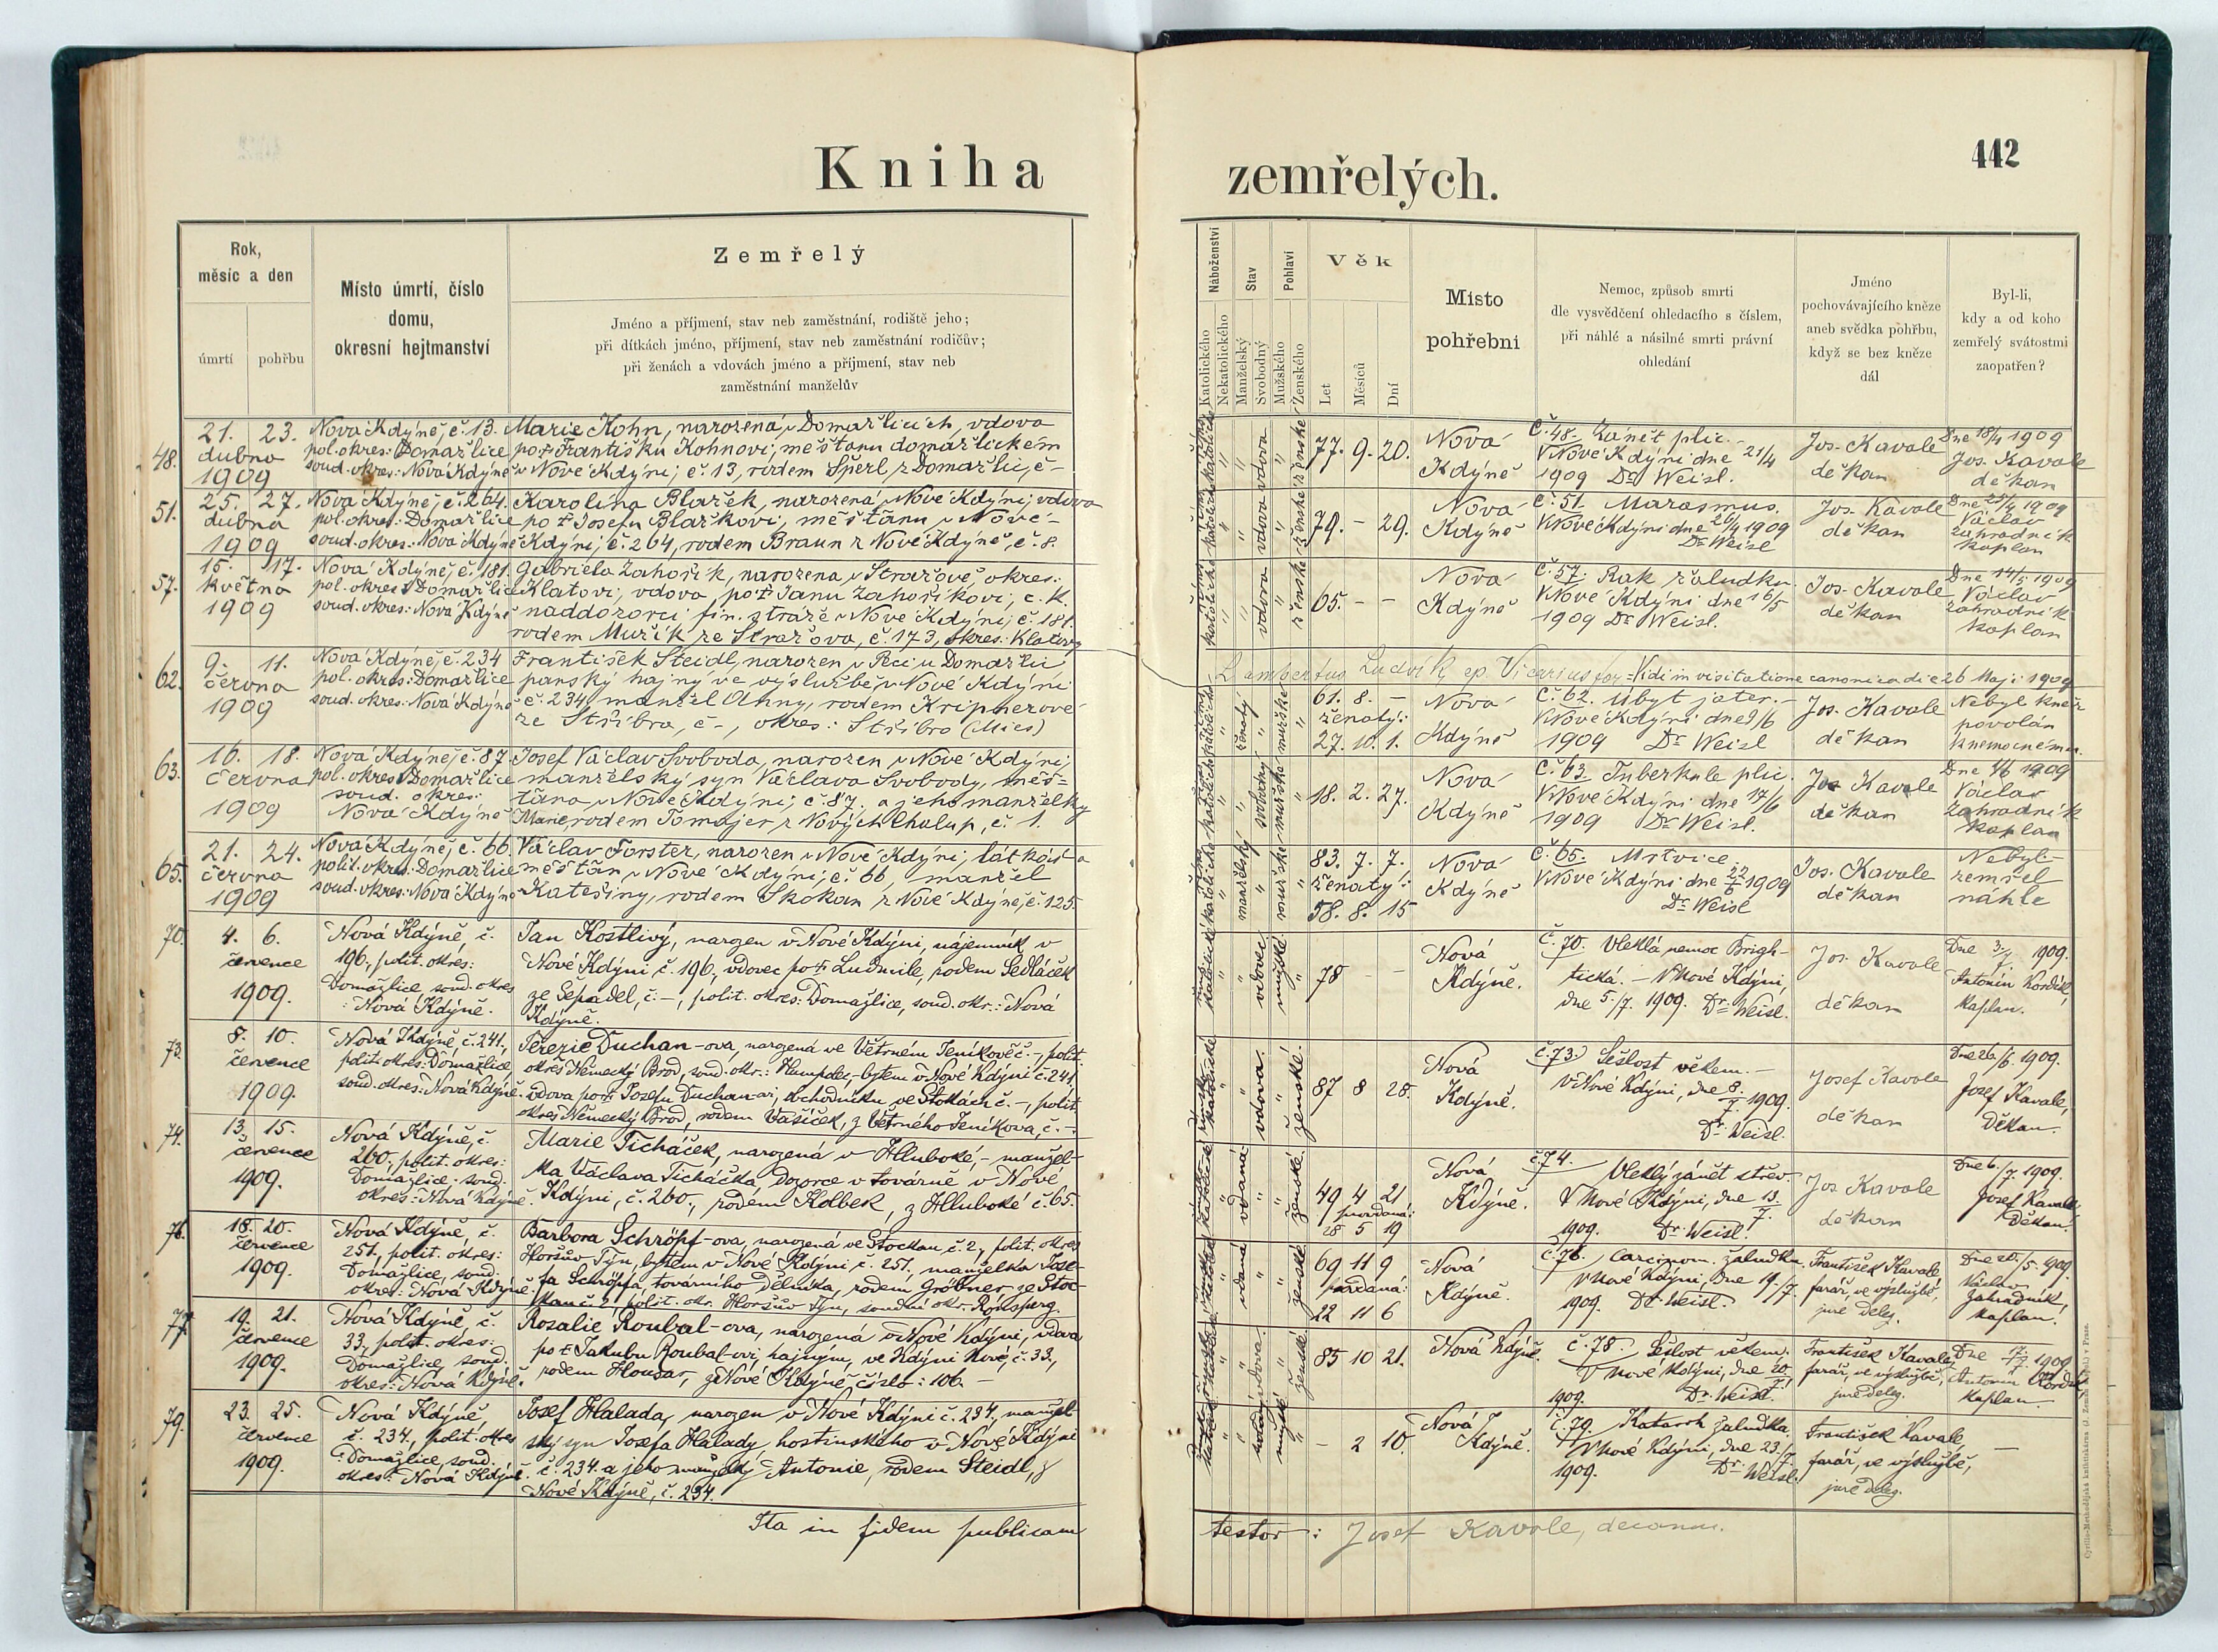 Kniha
Rok,
měsíc a den
úmrtí
pohřbu
Místo úmrtí, číslo
domu,
okresní hejtmanství
Zemřelý
Jméno a příjmení, stav neb zaměstnání, rodiště jeho;
při dítkách jméno, příjmení, stav neb zaměstnání rodičův;
při ženách a vdovách jméno a příjmení, stav neb
zaměstnání manželův
48.
21. 23.
dubna
1909
Nová Kdýně, č. 13.
pol. okres: Domažlice
soud. okres: Nová Kdýně
Marie Kohn, narozená v Domažlicích, vdova
po † Františku Kohnovi, měšťanu domažlickém
v Nové Kdýni, č. 13, rodem Šperl, z Domažlic, č –
51.
25. 27.
dubna
1909
Nová Kdýně, č. 264.
pol. okres: Domažlice
soud. okres: Nová Kdýně
Karolina Blažek, narozená v Nové Kdýni, vdova
po † Josefu Blažkovi, měšťanu v Nové
Kdýni, č. 264, rodem Braun z Nové Kdýně, č. 8.
57.
15. 17.
května
1909
Nová Kdýně, č. 181.
pol. okres Domažlice
soud. okres: Nová Kdýně
Gabriela Zahořík, narozena v Stražově, okres:
Klatovi, vdova, po † Janu Zahoříkovi, c. K.
naddozorci fin. stráže v Nové Kdýni, č. 181.
rodem Mužík ze Stražova, č. 173, okres: Klatovy
62.
9. 11.
června
1909
Nová Kdýně, č. 234
pol. okres: Domažlice
soud. okres: Nová Kdýně
František Steidl, narozen v Peci u Domažlic
panský hajný ve výslužbě v Nové Kdýni
č. 234, manžel Anny, rodem Kripnerové
ze Stříbra, č –, okres: Stříbro (Mies)
63.
16. 18.
června
1909
Nová Kdýně, č. 87
pol. okres Domažlice
soud. okres:
Nová Kdýně
Josef Václav Svoboda, narozen v Nové Kdýni,
manželský syn Václava Svobody, měš=
ťana v Nové Kdýni, č. 87. a jeho manželky
Marie, rodem Tomajer z Nových Chalup, č. 1.
65.
21. 24.
června
1909
Nová Kdýně, č. 66.
polit. okres: Domažlice
soud. okres: Nová Kdýně
Václav Forster, narozen v Nové Kdýni,
měšťan v Nové Kdýni, č. 66, manžel
Kateřiny, rodem Skokan z Nové Kdýně, č. 125.
70.
4. 6.
července
1909.
Nová Kdýně, č.
196, polit. okres:
Domažlice, soud. okres
: Nová Kdýně.
Jan Kostlivý, narozen v Nové Kdýni, nájemník v
Nové Kdýni č. 196, vdovec po † Ludmile, rodem Sedláček
ze Spádel, č. –, polit. okres: Domažlice, soud. okr.: Nová
Kdýně.
73.
8. 10.
července
1909.
Nová Kdýně č. 241.,
polit. okres: Domažlice,
soud. okres: Nová Kdýně.
Terezie Duchan-ova, narozená ve Větrném Jeníkově č. –, polit.
okres Německý Brod, soud. okr.: Humpolec, bytem v Nové Kdýni č. 241,
vdova po † Josefu Duchan-ovi, obchodníku ve Štokách č. –, polit.
okres Německý Brod, rodem Vašíček, z Větrného Jeníkova, č. –.
74.
13. 15.
července
1909.
Nová Kdýně, č.
260, polit. okres:
Domažlice, soud.
okres: Nová Kdýně.
Marie Ticháček, narozená v Hluboké, – manžel-
ka Václava Ticháčka, dozorce v továrně v Nové
Kdýni, č. 260., rodem Kolbek, z Hluboké č. 65.
76.
18. 20.
července
1909.
Nová Kdýně, č.
251., polit. okres:
Domažlice, soud.
okres: Nová Kdýně:
Barbora Schröpf-ova, narozená ve Stockau č. 2., polit. okres
Horšův Týn, bytem v Nové Kdýni č. 251. manželka Jose-
fa Schröpfa, továrního dělníka, rodem Gröbner ze Stoc-
kau č. 2, polit. okr. Horšův Týn, soudní okr. Ronsperg.
77.
19. 21.
července
1909.
Nová Kdýně, č.
33, polit. okres:
Domažlice, soud.
okres: Nová Kdýně.
Rosalie Roubal-ova, narozená v Nové Kdýni, vdova
po † Jakubu Roubal-ovi, hajným, ve Kdýni Nové, č. 33.,
rodem Housar, z Nové Kdýně číslo: 106. –
79.
23. 25.
července
1909.
Nová Kdýně,
č. 234, polit. okres
: Domažlice, soud.
okres: Nová Kdýně.
Josef Halada, narozen v Nové Kdýni č. 234., manžel-
ský syn Josefa Halady, hostinského v Nové Kdýni
č. 234. a jeho manželky Antonie, rodem Steidl, z
Nové Kdýně, č. 234.
Ita in fidem publicam
442
zemřelých.
Náboženství
Katolického
Nekatolického
Stav
Manželský
Svobodný
Pohlaví
Mužského
Ženského
Věk
Let
Měsíců
Dní
Místo
pohřebni
Nemoc, způsob smrti
dle vysvědčení ohledacího s číslem,
při náhlé a násilné smrti právní
ohledání
Jméno
pochovávajícího kněze
aneb svědka pohřbu,
když se bez kněze
dál
Byl-li,
kdy a od koho
zemřelý svátostmi
zaopatřen?
vdova
ženské
77. 9. 20.
Nová
Kdýně
Č. 48. Zánět plic. –
V Nové Kdýni dne 21/4
1909 Dr. Weisl.
Jos. Kavale
děkan
Dne 18/4 1909
Jos. Kavale
děkan
vdova
ženské
79. – 29.
Nová
Kdýně
Č. 51. Marasmus.
V Nové Kdýni dne 26/4 1909
Dr. Weisl
Jos. Kavale
děkan
Václav
Zahradník
Kaplan
vdova
ženské
65. – –
Nová
Kdýně
Č. 57. Rak žaludku.
V Nové Kdýni dne 16/5
1909 Dr. Weisl.
Jos. Kavale
děkan
Dne 14/5 1909
Václav
Zahradník
Kaplan
Lambertus Ludvík ep. Vicarius for = Vidi in visitatione canonica die 26 Maji 1909
ženatý
mužské
61. 8. –
ženatý:
27. 10. 1.
Nová
Kdýně
Č. 62. Úbyt jater. –
V Nové Kdýni dne 9/6
1909 Dr. Weisl
Jos. Kavale
děkan
Nebyl kněz
povolán
k nemocnému.
svobodný
mužské
18. 2. 27.
Nová
Kdýně
Č. 63. Tuberkule plic.
V Nové Kdýni dne 17/6
1909 Dr. Weisl.
Jos Kavale
děkan
Dne 1/6 1909
Václav
Zahradník
Kaplan
manželský
mužské
83. 7. 7.
ženatý:
58. 8. 15
Nová
Kdýně
Č. 65. Mrtvice.
V Nové Kdýni dne 22/6 1909
Dr. Weisl
Jos. Kavale
děkan
Nebyl –
zemřel
náhle
vdovec
mužské
78 – –
Nová
Kdýně.
Č. 70. Vleklá nemoc Brigh-
tická. – V Nové Kdýni,
dne 5./7. 1909. Dr. Weisl.
Jos. Kavale
děkan
Dne 3./7. 1909.
Antonín Kordík,
Kaplan.
vdova.
ženské.
87 8 28.
Nová
Kdýně.
č. 73. Sešlost věkem. –
V Nové Kdýni, dne 8./7. 1909.
Dr. Weisl.
Josef Kavale
děkan
Dne 26./6. 1909.
Josef Kavale,
Děkan.
vdaná
ženské.
49 4 21.
provdaná:
28 5 19
Nová
Kdýně.
č. 74. Vleklý zánět střev.
V Nové Kdýni, dne 13./7.
1909. Dr. Weisl.
Jos Kavale
děkan
Dne 6./7. 1909.
Josef Kavale,
Děkan.
vdaná
ženské
69 11 9
provdaná:
22 11 6
Nová
Kdýně.
č. 76. Carcinom. žaludku
V Nové Kdýni, dne 19./7.
1909. Dr. Weisl.
František Kavale
farář, ve výslužbě,
jure deleg.
Dne 20./5. 1909.
Václav
Zahradník,
Kaplan.
vdova.
ženské
85 10 21.
Nová Kdýně.
č. 78. Sešlost věkem.
V Nové Kdýni, dne 20/7.
1909. Dr. Weisl.
František Kavale,
farář, ve výslužbě,
jure deleg.
Antonín Kordík
Kaplan.
svobodný
mužské
– 2 10.
Nová
Kdýně.
č. 79. Katarrh žaludka.
V Nové Kdýni, dne 23./7.
1909. Dr. Weisl.
František Kavale
farář, ve výslužbě,
jure deleg.
–
testor: Josef Kavale, decanus.